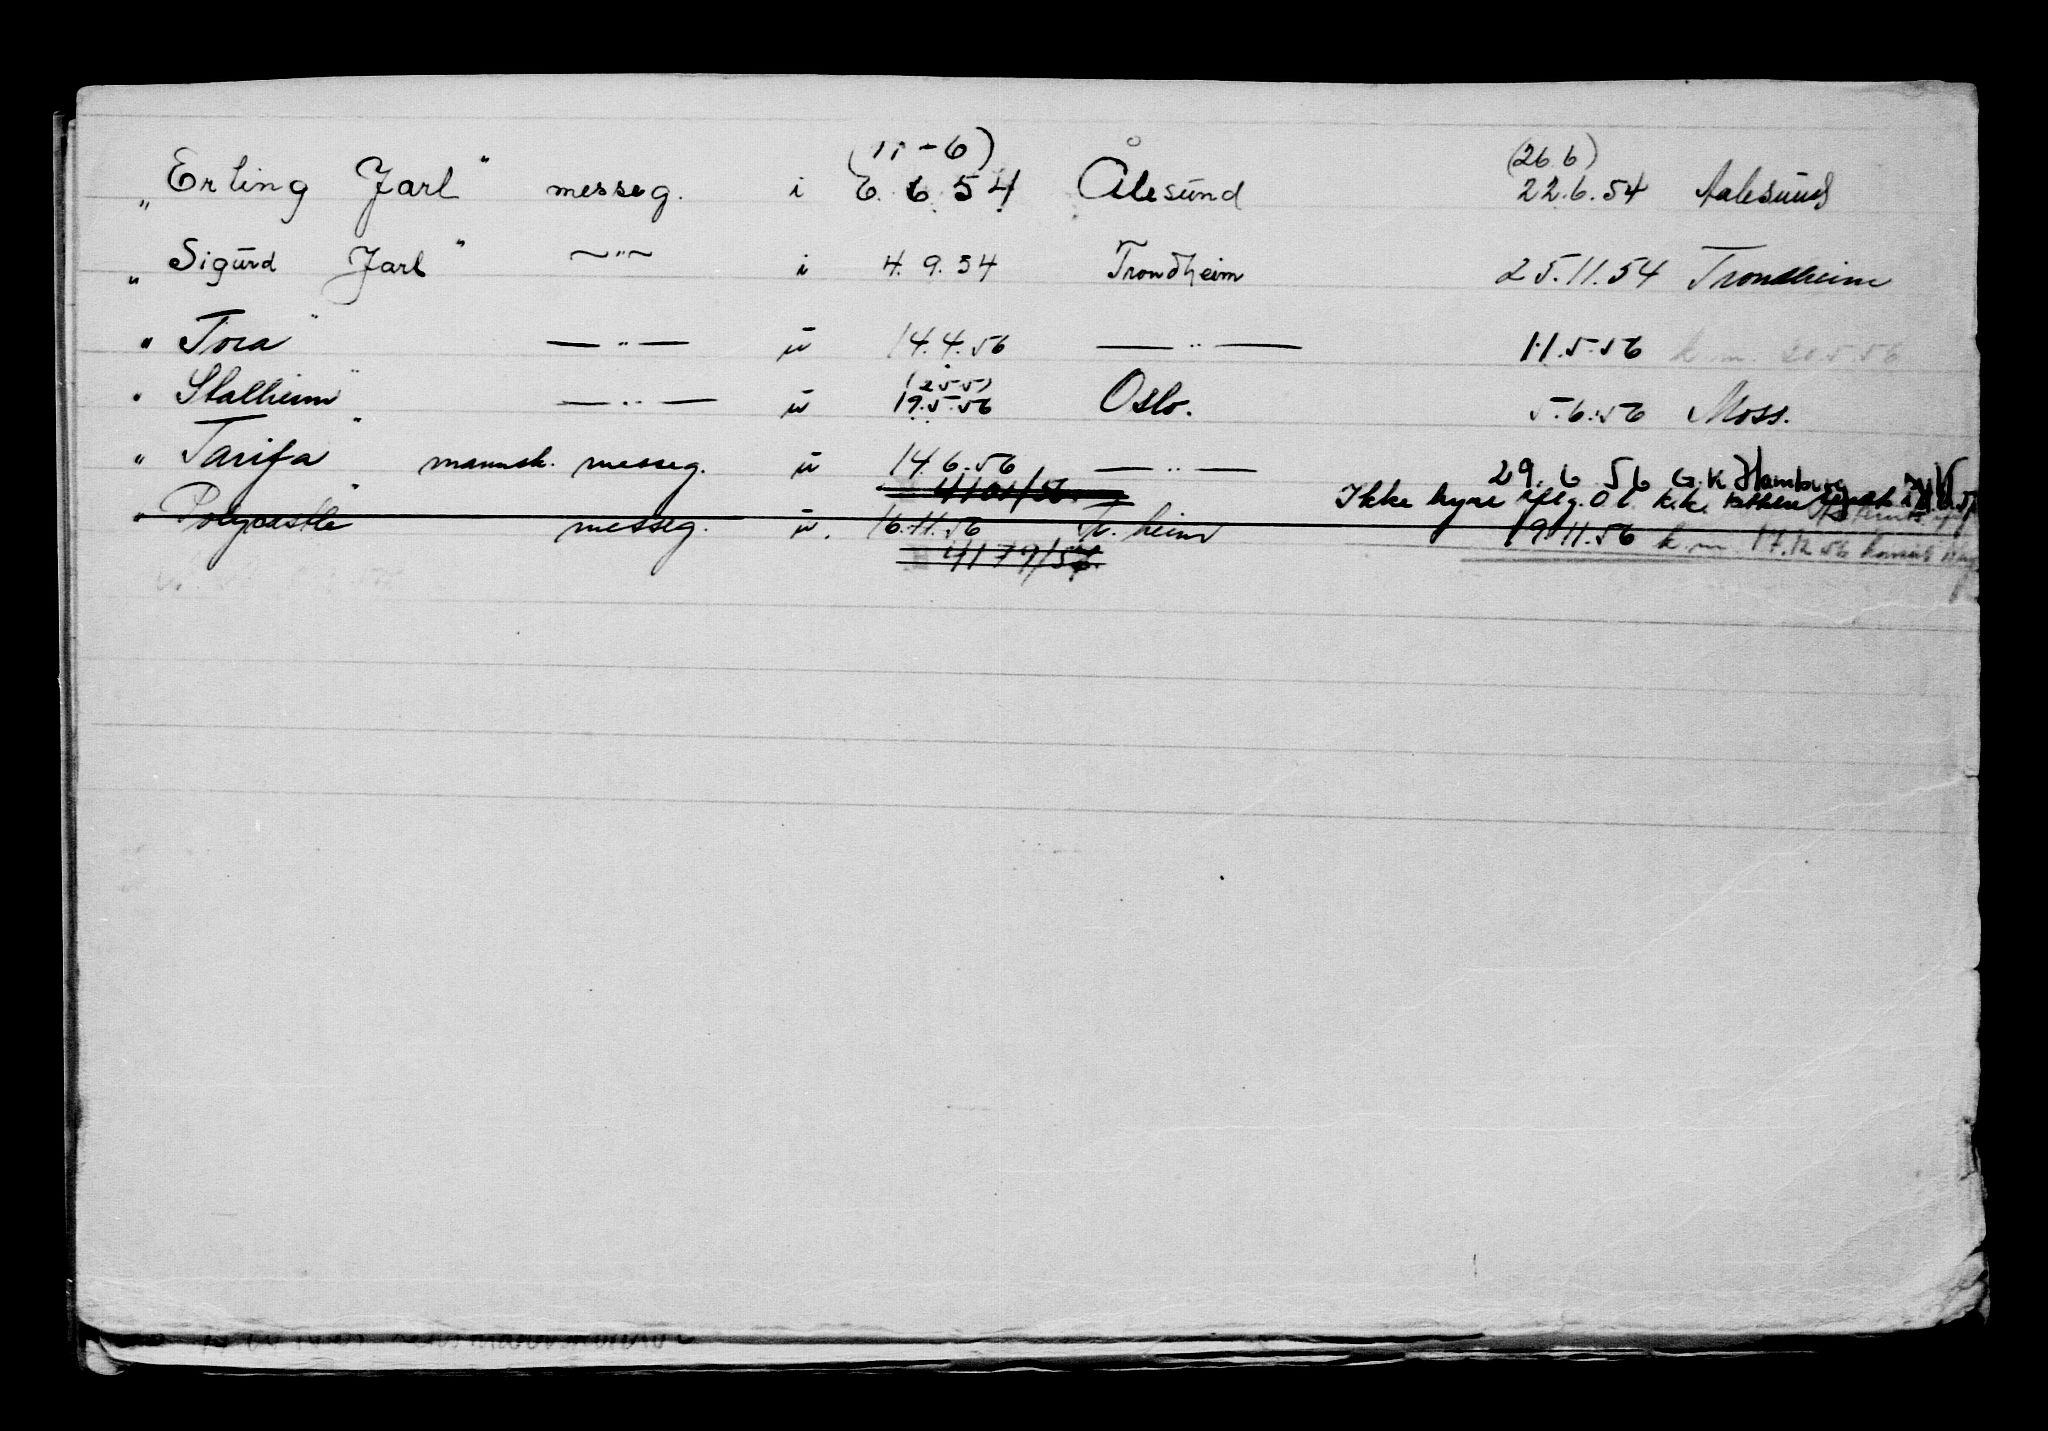 (11-6) (26 6)
„Erling Jarl" messeg. i 6. 6. 54 Ålesund 22.6.54 Aalesund
„Sigurd Jarl" —"— i 4. 9. 54 Trondheim 25.11.54 Trondheim
" Tora" —"— u 14.4.56 —"— 11.5.56 k.m. 20.5.56
(25 5)
" Stalheim" —"— u 19.5.56 Oslo. 5.6.56 Moss.
" Tarifa" mannsk. messeg. u 14.6.56 —"— 29.6 56 G.K Hamburg
4101/56 Ikke hyre iflg. O L k.k.
" Polycastle" messeg. u. 16.11.56 Tr. heim 19.11.56 k.m. 17.12.56